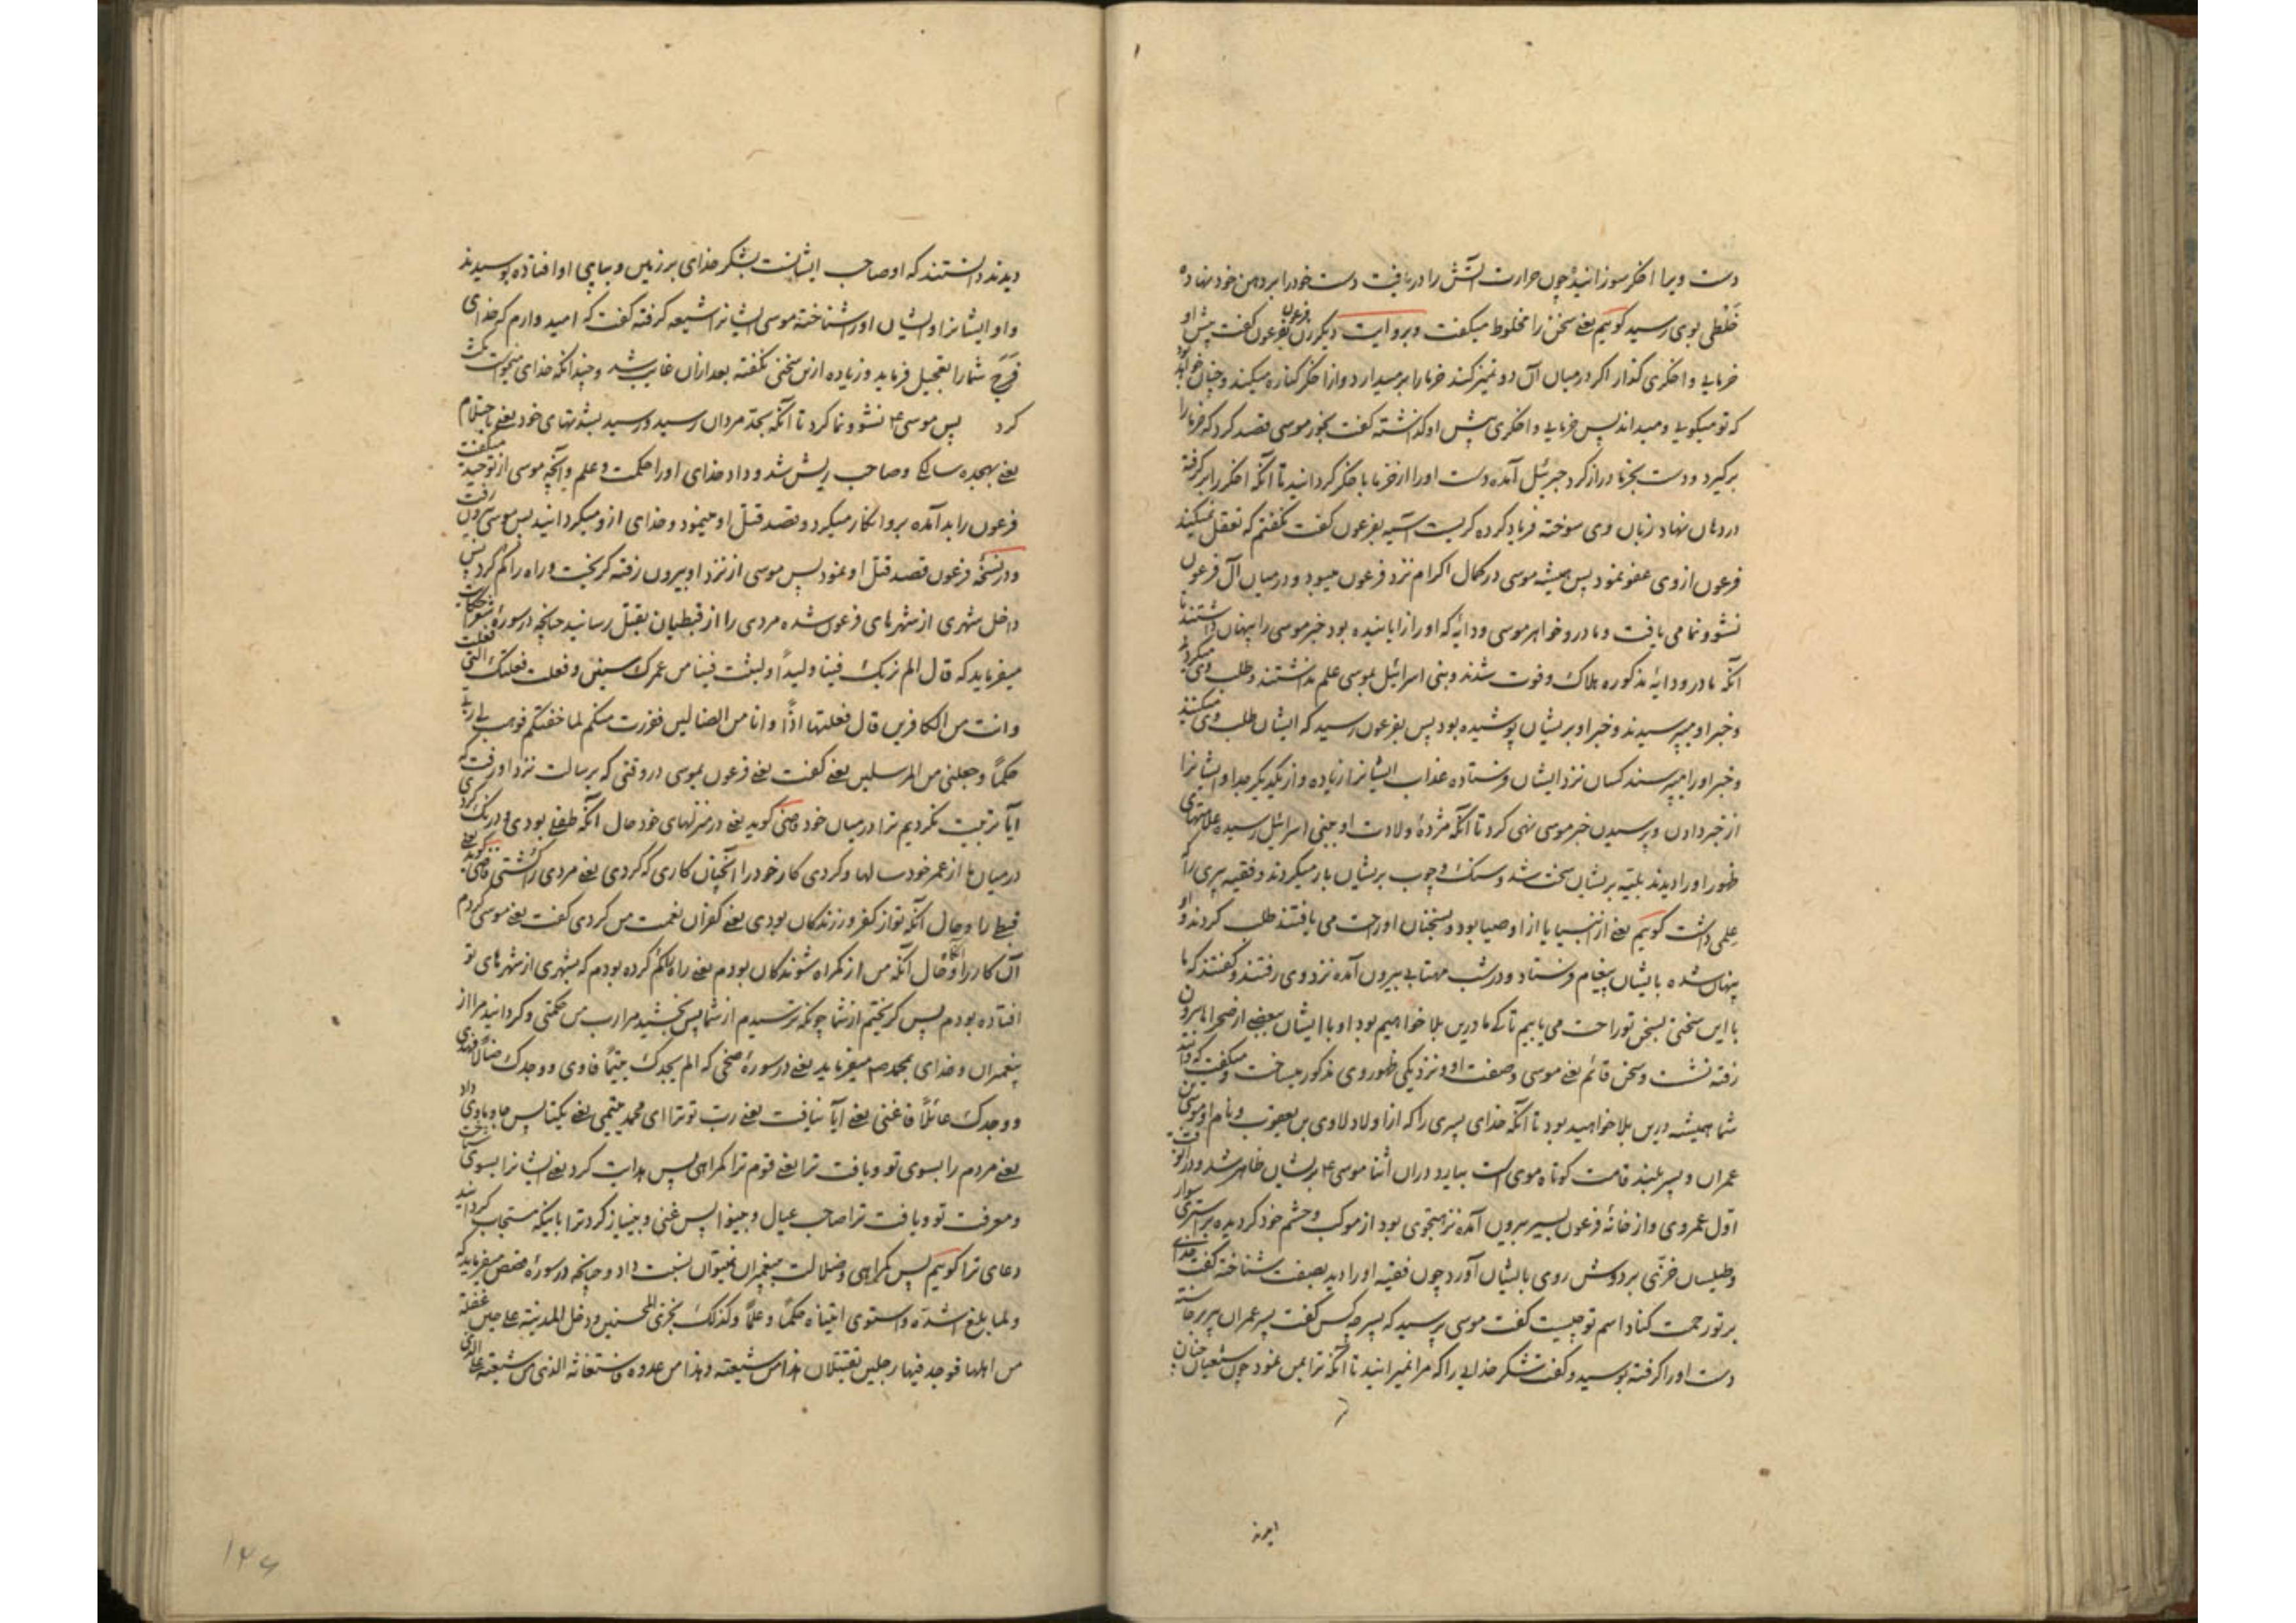 دست ویرا اخکر سوزانید چون حرارت آتش را دریافت دست خودرا بر دهن خود نهاده
خلطی بوی رسید کوییم یعنی سخن را مخلوط میکفت و بروایت دیکر زن فرعون بفرعون کفت پیش او
خرمایی و اخکری کذار اکر درمیان آن دو تمیز کند خرما را برمیدارد و از اخکر کناره میکند و چنان خواهد بود
که تو میکویی و میداند پس خرمایی و اخکری پیش او کذاشته کفت بخور موسی قصد کرد که خرما را
برکیرد و دست بخرما دراز کرد جبرئیل آمده دست اورا از خرما باخکر کردانید تا آنکه اخکر را برکرفته
در دهان نهاد زبان وی سوخته فریاد کرده کریست آسیه بفرعون کفت نکفتم که تعقل نمیکند
فرعون از وی عفو نمود پس همیشه موسی در کمال اکرام نزد فرعون میبود و درمیان آل فرعون
نشو و نما می یافت و مادر و خواهر موسی و دایه که اورا زایانیده بود خبر موسی را پنهان داشتند تا
آنکه مادر و دایه مذکوره هلاک و فوت شدند و بنی اسرائیل بموسی علم نداشتند و طلب وی میکردند
و خبر او میپرسیدند و خبر او بریشان پوشیده بود پس بفرعون رسید که ایشان طلب وی میکنند
و خبر اورا میپرسند کسان نزد ایشان فرستاده عذاب ایشانرا زیاده و از یکدیکر جدا و ایشانرا
از خبر دادن و پرسیدن خبر موسی نهی کرد تا آنکه مژده ولادت او ببنی اسرائیل رسیده علامتهای
ظهور اورا دیدند بلیه بریشان سخت شد و سنک و چوب بریشان بار میکردند و فقیه پیری را که
علمی داشت کوییم یعنی از انبیا یا از اوصیا بود و بسخنان او راحت می یافتند طلب کردند و او
پنهان شده بایشان پیغام فرستاد و در شب مهتابی بیرون آمده نزد وی رفتند و کفتند که ما
با این سختی بسخن تو راحت می یابیم تا کی ما درین بلا خواهیم بود او با ایشان ببعضی از صحرا بیرون
رفته نشست و سخن قائم یعنی موسی و صفت او و نزدیکی ظهور وی مذکور میساخت و میکفت که دانید
شما همیشه درین بلا خواهید بود تا آنکه خدای پسری را که از اولاد لاوی بن یعقوب و نام او موسی بن
عمران و پسر بلند قامت کوتاه موی است بیارد دران اثنا موسی ع بریشان ظاهر شد و درآنوقت
اول عمر وی و از خانه فرعون بسیر بیرون آمده بود از موکب و حشم خود کردیده بر استری سوار
و طیلسان خزی بر دوش روی بایشان آورد چون فقیه اورا دید بصفت شناخته کفت خدای
بر تو رحمت کناد اسم تو چیست کفت موسی پرسید که پسر چه کس کفت پسر عمران پیر برخاسته
دست اورا کرفته بوسید و کفت شکر خدایی را که مرا نمیرانید تا آنکه ترا بمن نمود چون شیعیان چنان
دیدند
دیدند دانستند که او صاحب ایشانست بشکر خدای بر زمین و بپای او افتاده بوسیدند
و او ایشانرا و ایشان اورا شناخته موسی ایشانرا شیعه کرفته کفت که امید دارم که خدای
فرج شمارا تعجیل فرماید و زیاده ازین سخنی نکفته بعد ازان غایب شد و چندانکه خدای میخواست مکث
کرد پس موسی ع نشو و نما کرد تا آنکه بحد مردان رسید و رسید بشدتهای خود یعنی باحتلام
یعنی بهجده سالکی و صاحب ریش شد و داد خدای اورا حکمت و علم و آنچه موسی از توحید میکفت
فرعون را بد آمده برو انکار میکرد و قصد قتل او مینمود و خدای ازو میکردانید پس موسی بیرون رفت
و در نسخه فرعون قصد قتل او نمود پس موسی از نزد او بیرون رفته کریخت و راه را کم کرد پس
داخل شهری از شهرهای فرعون شده مردی را از قبطیان بقتل رسانید چنانچه در سوره شعرا حکایت
میفرماید که قال الم نربک فینا ولیدا و لبثت فینا من عمرک سنین و فعلت فعلتک التی فعلت
و انت من الکافرین قال فعلتها اذا و انا من الضالین ففررت منکم لما خفتکم فوهب لی ربی
حکما و جعلنی من المرسلین یعنی کفت یعنی فرعون بموسی در وقتی که برسالت نزد او رفت که
آیا تربیت نکردیم ترا درمیان خود قاضی کوید یعنی در منزلهای خود حال آنکه طفل بودی و درنک کردی
درمیان ما از عمر خود سالها و کردی کار خودرا آنچنان کاری که کردی یعنی مردی را کشتی قاضی کوید یعنی
قبطی را و حال آنکه تو از کفر ورزندکان بودی یعنی کفران نعمت من کردی کفت یعنی موسی کردم
آن کار را آنکاه و حال آنکه من از کمراه شوندکان بودم یعنی راه کم کرده بودم که بشهری از شهرهای تو
افتاده بودم پس کریختم از شما چونکه ترسیدم از شما پس بخشید مرا رب من حکمتی و کردانید مرا از
پیغمبران و خدای بمحمد ص میفرماید یعنی در سوره ضحی که الم یجدک یتیما فاوی و وجدک ضالا فهدی
و وجدک عائلا فاغنی یعنی آیا نیافت یعنی رب تو ترا ای محمد یتیمی یعنی یکتا پس جا و ماوی داد
یعنی مردم را بسوی تو و یافت ترا یعنی قوم ترا کمراهی پس هدایت کرد یعنی ایشانرا بسوی شناخت
و معرفت تو و یافت ترا صاحب عیال و بینوا پس غنی و بینیاز کرد ترا باینکه مستجاب کردانید
دعای ترا کوییم پس کمراهی و ضلالت بپیغمبران نمیتوان نسبت داد و چنانچه در سوره قصص میفرماید که
و لما بلغ اشده و استوی اتیناه حکما و علما و کذلک نجزی المحسنین و دخل المدینة علی حین غفلة
من اهلها فوجد فیها رجلین یقتتلان هذا من شیعته و هذا من عدوه فاستغاثه الذی من شیعته علی الذی
۱۴۶